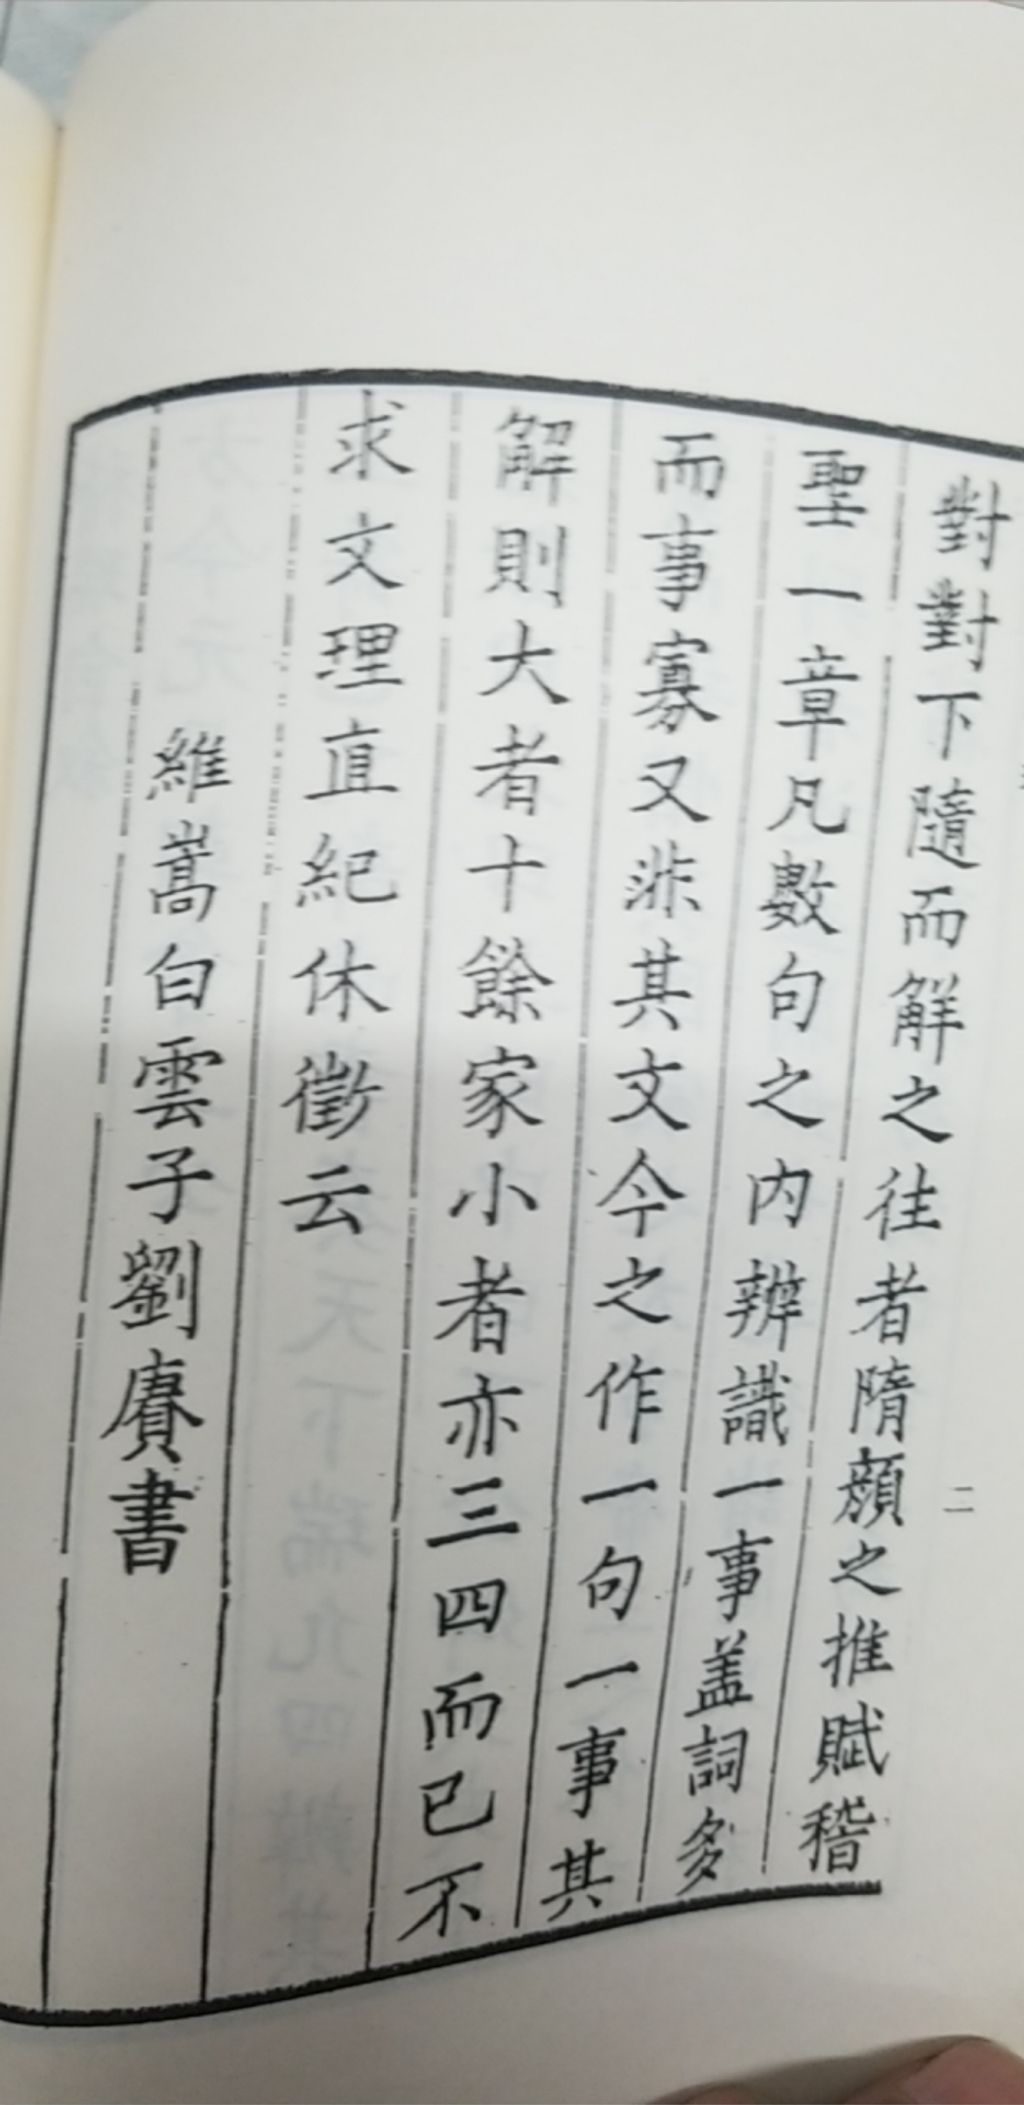 對對下隨而解之往者隋顏之推賦稽
聖一章凡數句之内辨識一事盖詞多
而事寡又非其文今之作一句一事其
解則大者十餘家小者亦三四而已不
求文理直紀休徵云
維嵩白雲子劉賡書
二